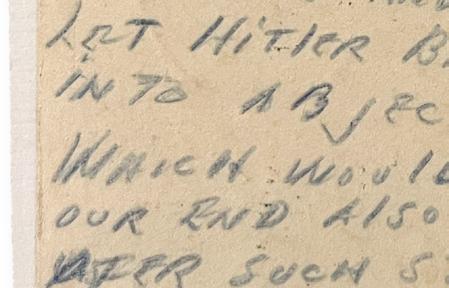 LET HITLER B
INTO ABJEC
WHICH WOUL
OUR END ALSO
AFTER SUCH S